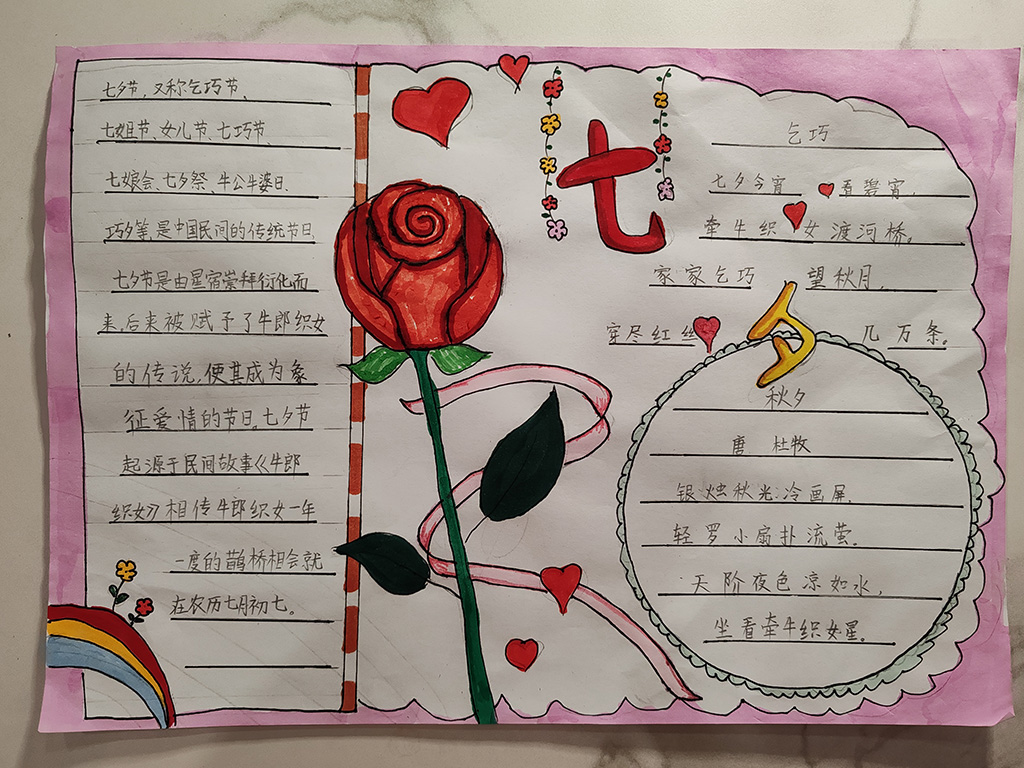 七夕节,又称乞巧节、
七姐节、女儿节、七巧节、
七娘会、七夕祭、牛公牛婆日、
巧夕等,是中国民间的传统节日
七夕节是由星宿崇拜衍化而
来,后来被赋予了牛郎织女
的传说,便其成为象
征爱情的节日。七夕节
起源于民间故事《牛郎
织女》相传牛郎织女一年
一度的鹊桥相会就
在农历七月初七。
七夕
乞巧
七夕今宵看碧宵,
牵牛织女渡河桥。
家家乞巧望秋月,
穿尽红丝几万条。
秋夕
唐 杜牧
银烛秋光冷画屏,
轻罗小扇扑流萤。
天阶夜色凉如水,
坐看牵牛织女星。